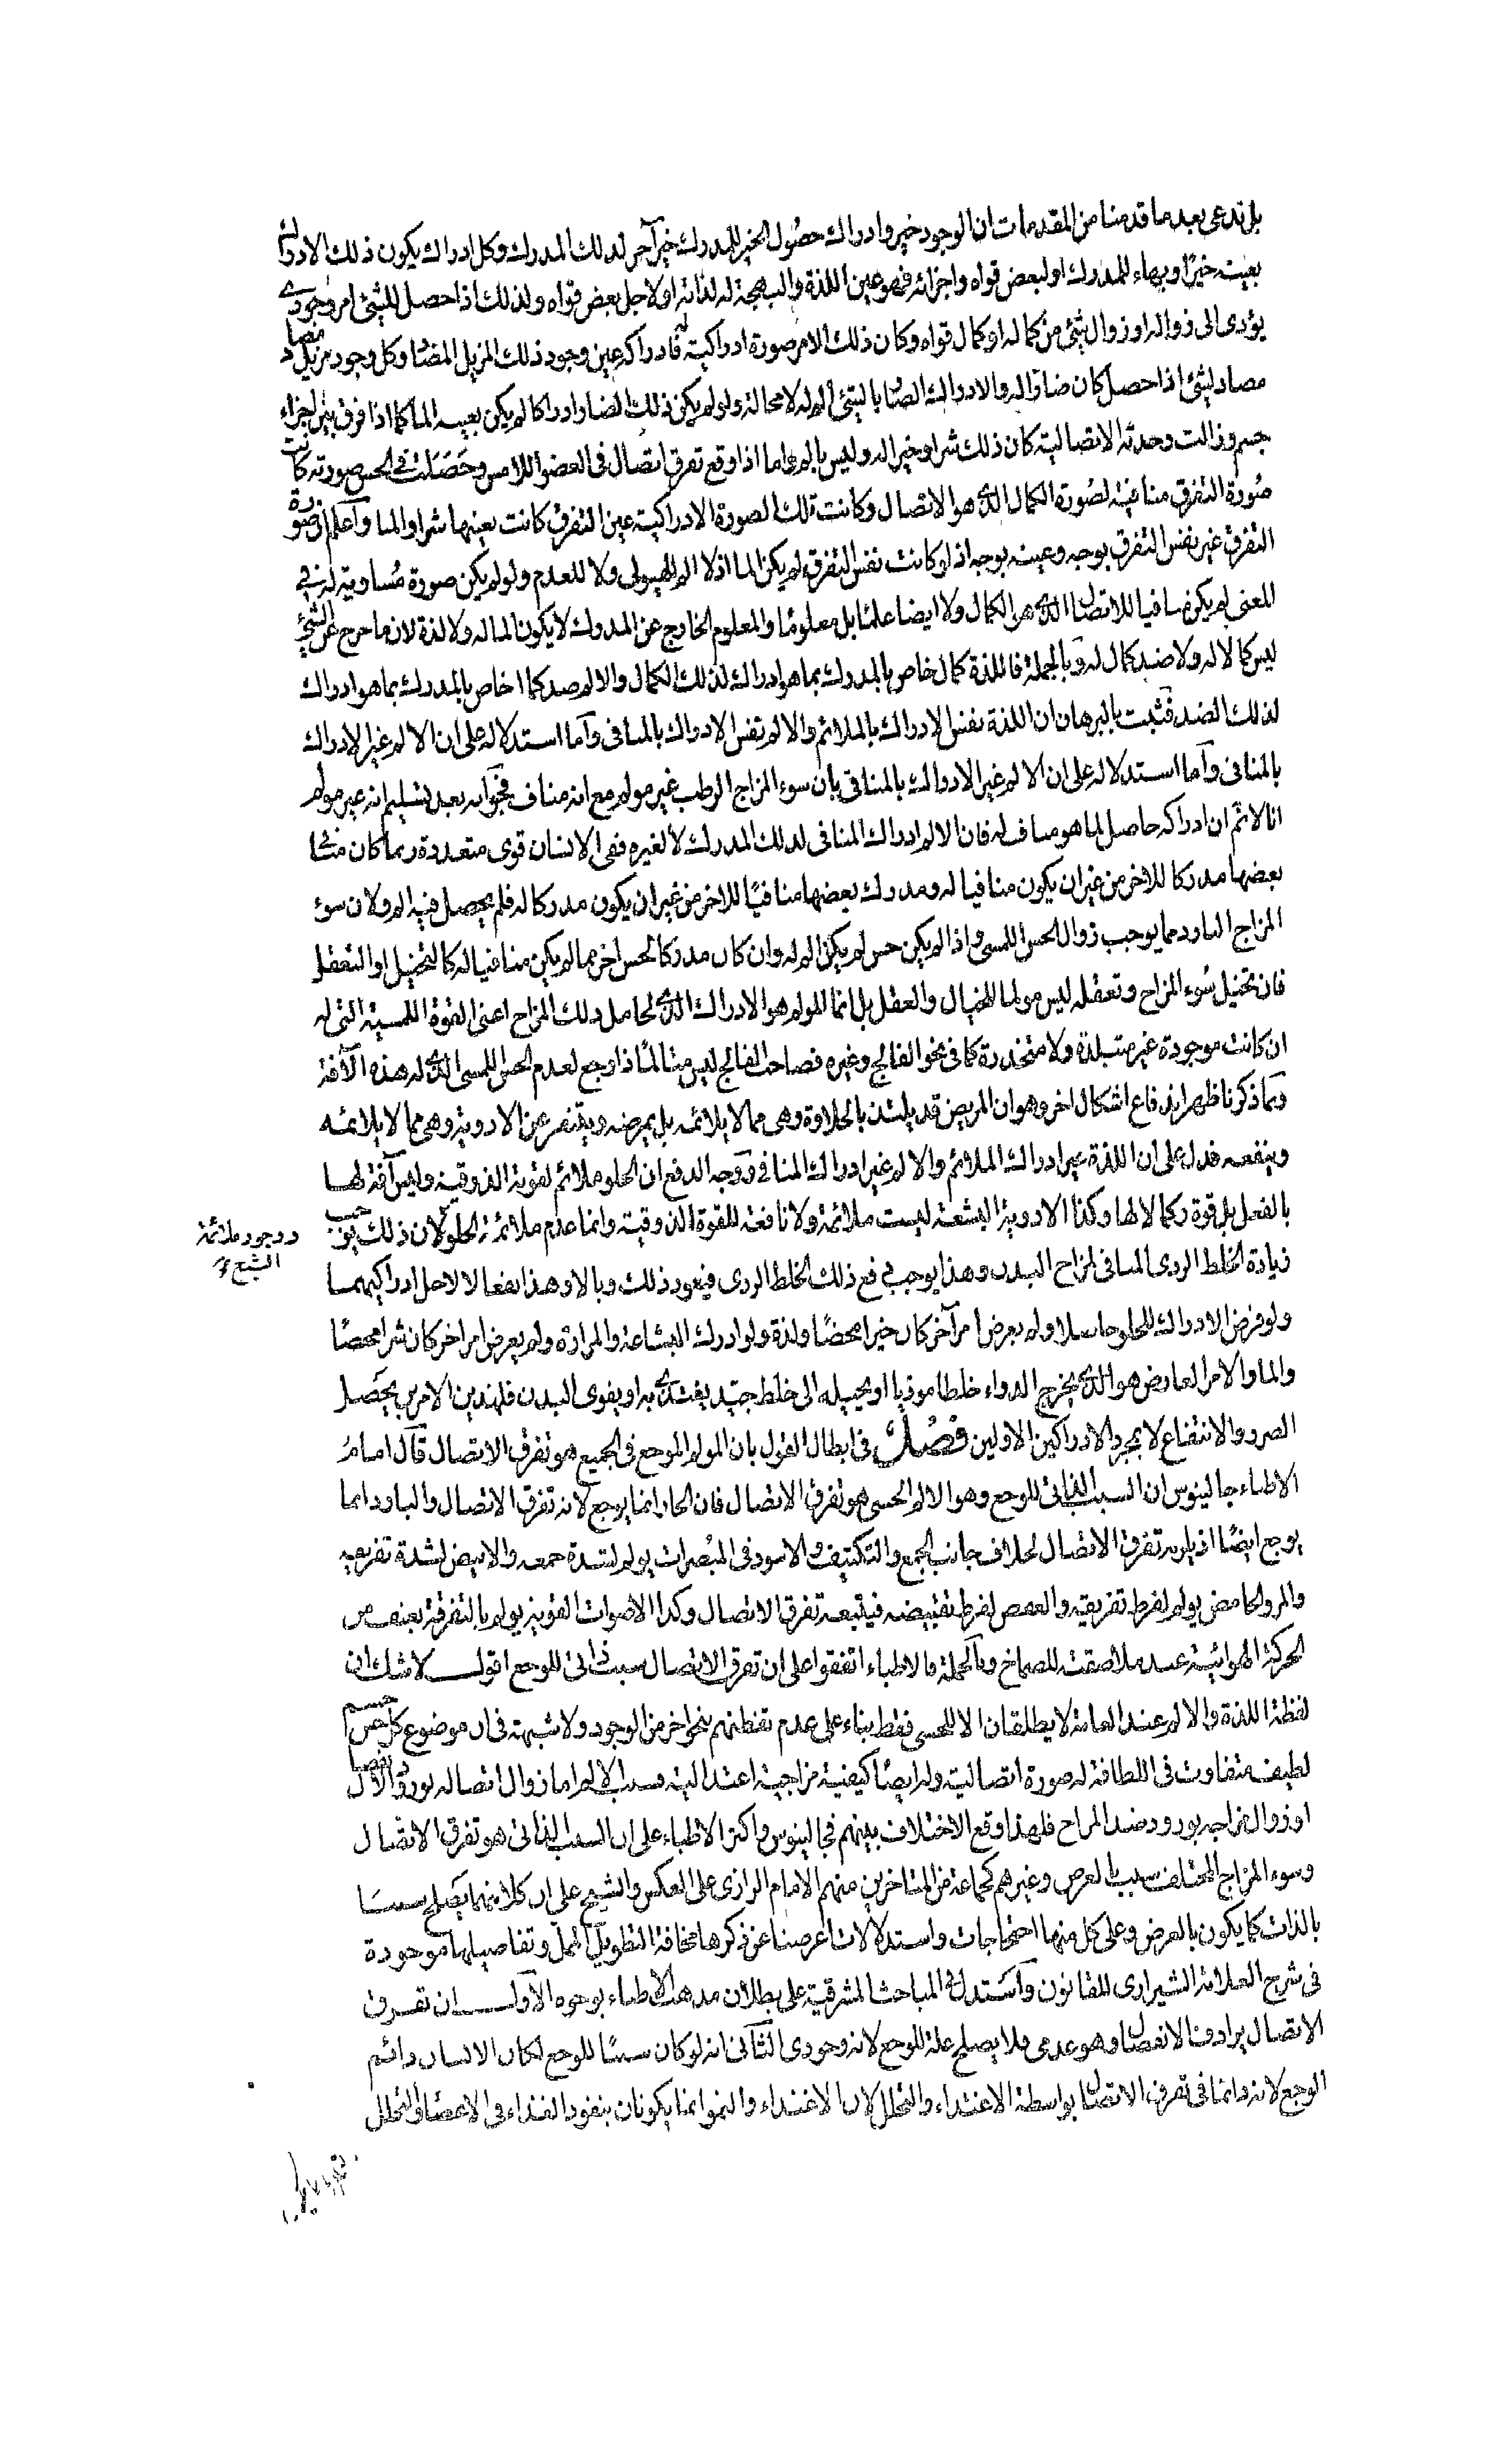 بل ندعى بعد ما قدمنا من المقدمات ان الوجود خير وادراك حصول الخير للمدرك خير آخر لذلك المدرك وكل ادراك يكون ذلك الادراك
بعينه خيرًا وبهاء للمدرك او لبعض قواه واجزائه فهو عين اللذة والبهجة له لذاته او لاجل بعض قواه ولذلك اذا حصل للشئ امر وجودى
يؤدى الى زواله او زوال شئ من كماله او كمال قواه وكان ذلك الامر صورة ادراكية له فادراكه عين وجود ذلك المزيل المضاد وكل وجود مزيل مضاد
مضاد لشئ اذا حصل كان ضارا له والادراك الضار بالشئ ألم له لا محالة ولو لم يكن ذلك الضار ادراكا لم يكن بعينه الما كما اذا فرق بين اجزاء
جسم وزالت وحدته الاتصالية كان ذلك شرا وخيرا له وليس بألم واما اذا وقع تفرق اتصال فى العضو اللامس وحصلت فى الحس صورته كانت
صورة التفرق منافية لصورة الكمال الذى هو الاتصال وكانت تلك الصورة الادراكية عين التفرق كانت بعينها شرا والما وأعلم ان صورة
التفرق غير نفس التفرق بوجه وعينه بوجه اذ لو كانت نفس التفرق لم يكن الما اذ لا الم للهيولى ولا للعدم ولو لم يكن صورة مساوية له فى
المعنى لم يكن منافيا للاتصال الذى هو الكمال ولا ايضا علما بل معلومًا والمعلوم الخارج عن المدرك لا يكون الما له ولا لذة لان ما خرج عن الشئ
ليس كمالا له ولا ضد كمال له وبالجملة فاللذة كمال خاص بالمدرك بما هو ادراك لذلك الكمال والالم ضد كمال خاص بالمدرك بما هو ادراك
لذلك الضد فثبت بالبرهان ان اللذة نفس الادراك بالملائم والالم نفس الادراك بالمنافى وأما استدلاله على ان الالم غير الادراك
بالمنافى وأما استدلاله على ان الالم غير الادراك بالمنافى بان سوء المزاج الرطب غير مولم مع انه مناف فجوابه بعد تسليم انه غير مولم
انا لا نثم ان ادراكه حاصل لما هو مناف له فان الالم ادراك المنافى لذلك المدرك لا لغيره ففى الانسان قوى متعددة ربما كان منها
بعضها مدركا للاخر من غير ان يكون منافيا له ومدرك بعضها منافيًا للاخر من غير ان يكون مدركا له فلم يحصل فيه الم ولان سوء
المزاج البارد مما يوجب زوال الحس اللمسى واذا لم يكن حس لم يكن الم له وان كان مدركا لحس اخر مما لم يكن منافيا له كالتخيل او التعقل
فان تخيل سوء المزاج وتعقله ليس مولما للخيال والعقل بل انما المولم هو الادراك الذى لحامل ذلك المزاج اعنى القوة اللمسية التى له
ان كانت موجودة غير متبلدة ولا متخدرة كما فى نحو الفالج وغيره فصاحب الفالج ليس متألمًا ذا وجع لعدم الحس اللمسى الذى له هذه الآفة
وبما ذكرنا ظهر اندفاع اشكال اخر وهو ان المريض قد يلتذ بالحلاوة وهى مما لا يلائمه بل يمرضه ويتنفر عن الادوية وهى مما لا يلائمه
وينفعه فدل على ان اللذة غير ادراك الملائم والالم غير ادراك المنافى ووجه الدفع ان الحلو ملائم لقوته الذوقية وليس آفة لها
بالفعل بل قوة وكمالا لها وكذا الادوية البشعة ليست ملائمة ولا نافعة للقوة الذوقية وانما عدم ملائمة الحلو لان ذلك يوجب
ووجود ملائمة
البشع
زيادة الخلط الردى المنافى لمزاج البدن وهذا يوجب دفع ذلك الخلط الردى فيعود ذلك وبالا وهذا نفعا لا لاجل ادراكيهما
ولو فرض الادراك للحلو حاصلا ولم يعرض امر آخر كان خيرا محضًا ولذة ولو ادرك البشاعة والمرارة ولم يعرض امر اخر كان شرا محضًا
والما والامر العارض هو الذى يخرج الدواء خلطا موذيا او يحيله الى خلط جيد يغتذى به او يقوى البدن فلهذين الامرين يحصل
الضرر والانتفاع لا بمجرد الادراكين الاولين فصل فى ابطال القول بان المولم الموجع فى الجميع هو تفرق الاتصال قال امام
الاطباء جالينوس ان السبب الذاتى للوجع وهو الالم الحسى هو تفرق الاتصال فان الحار انما يوجع لانه تفرق الاتصال والبارد انما
يوجع ايضًا اذ يلزمه تفرق الاتصال لخلاف جانب الجمع والتكثيف والاسود فى المبصرات يولم لشدة جمعه والابيض لشدة تفريقه
والمر والحامض يولم لفرط تفريقه والعفص لفرط تقبيضه فيتبعه تفرق الاتصال وكذا الاصوات القوية يولم بالتفرقة بعنف من
الحركة الهوائية عند ملاصقته للصماخ وبالجملة فالاطباء اتفقوا على ان تفرق الاتصال سبب ذاتى للوجع اقول لا شك ان
لفظة اللذة والالم عند العامة لا يطلقان الا للحسى فقط بناء على عدم تفطنهم بنحو اخر من الوجود ولا شبهة فى ان موضوع كل حس جسم
لطيف متفاوت فى اللطافة له صورة اتصالية وله ايضًا كيفية مزاجية اعتدالية وسبب الالم اما زوال اتصاله بورود الانفصال
او زوال مزاجه بورود ضد المزاج فلهذا وقع الاختلاف بينهم فجالينوس واكثر الاطباء على ان السبب الذاتى هو تفرق الاتصال
وسوء المزاج المختلف سبب بالعرض وغيرهم كجماعة من المتاخرين منهم الامام الرازى على العكس والشيخ على ان كلا منهما يصلح سببا
بالذات كما يكون بالعرض وعلى كل منها احتجاجات واستدلالات اعرضنا عن ذكرها مخافة التطويل الممل وتفاصيلها موجودة
فى شرح العلامة الشيرازى للقانون وأستدل فى المباحث المشرقية على بطلان مذهب الاطباء بوجوه الاول ان تفرق
الاتصال يرادف الانفصال وهو عدمى فلا يصلح علة للوجع لانه وجودى الثانى انه لو كان سببًا للوجع لكان الانسان دائم
الوجع لانه دائما فى تفرق الاتصال بواسطة الاغتذاء والتحلل لان الاغتذاء والنمو انما يكونان بنفوذ الغذاء فى الاعضاء والتحلل